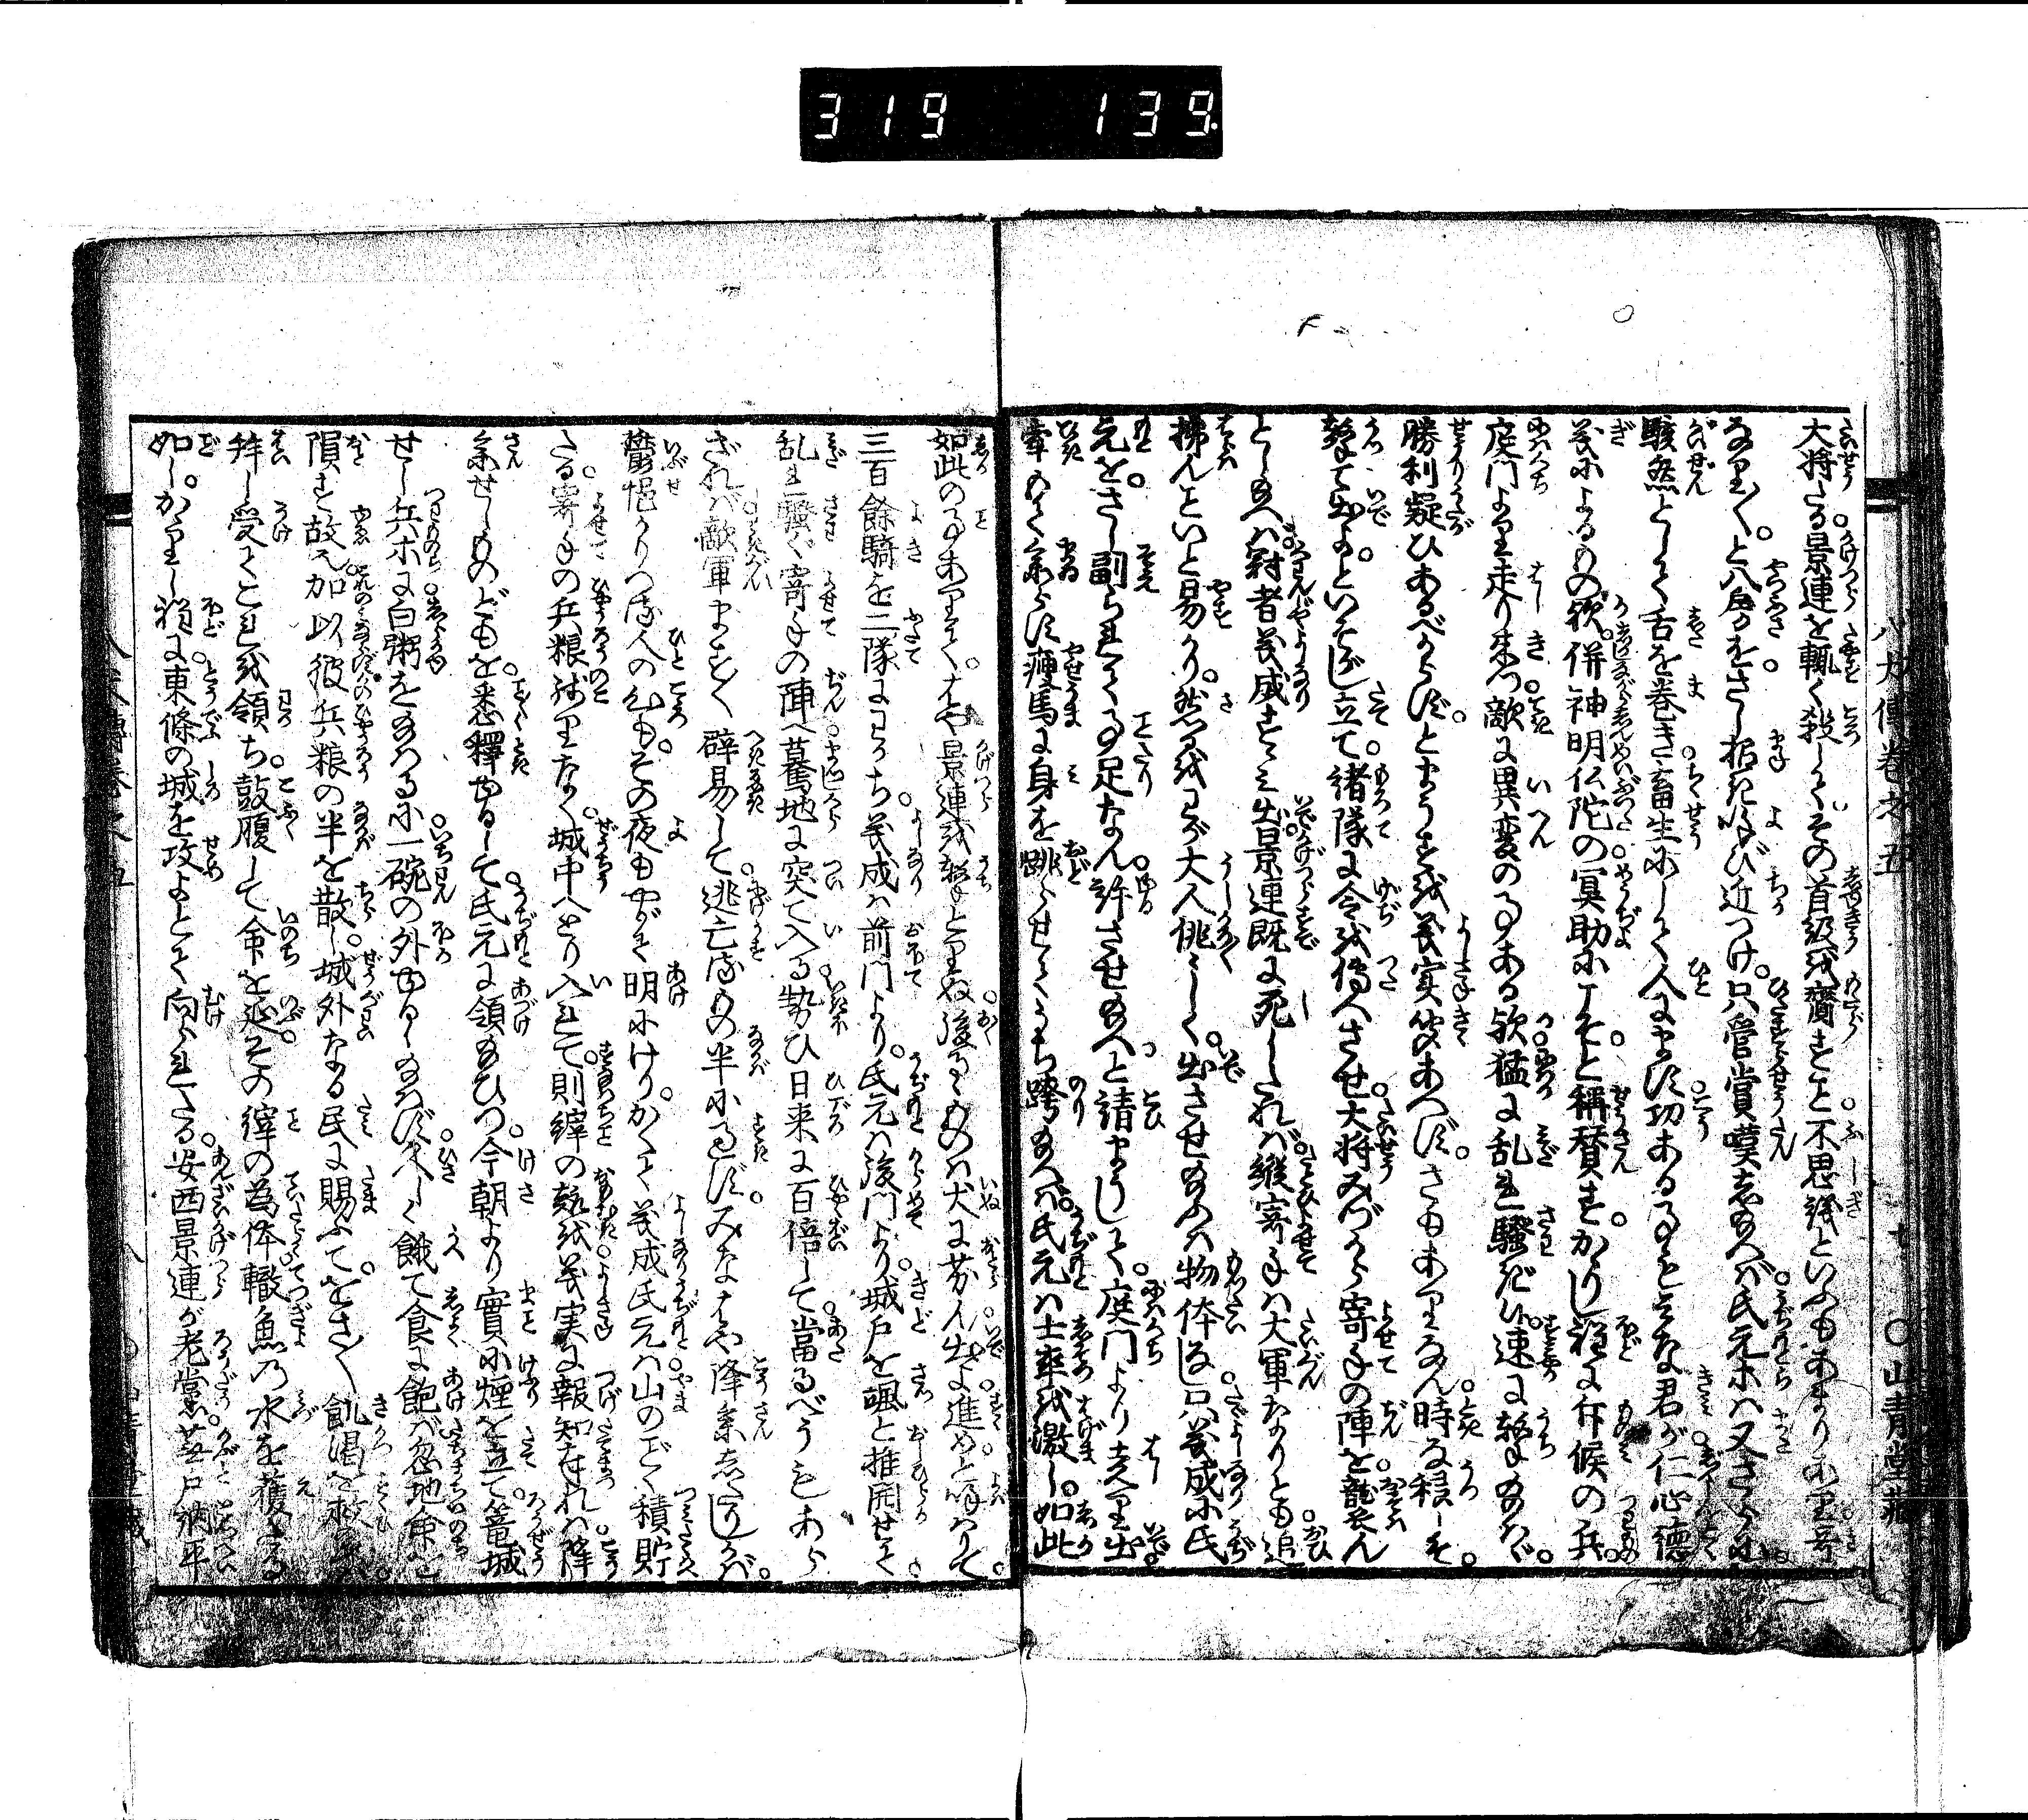 319 139
八犬傳巻之五
○山青堂藏
大将たる景連を輒く殺して、その首級を齎すこと、不思議といふもあまりあり、奇
なり〳〵と八房をさし招きよび近つけ、只管賞嘆し給へば、氏元ホは又さらに
駭然として舌を巻き、畜生にして人にます功あることを、みな君が仁心徳
義によるものか、併神明仏陀の冥助にこそと稱賛す。かゝりし程に斥候の兵、
庭門より走り来つ、敵に異変の事ある歟、猛に乱れ騒ぎ候、速に撃給はゞ、
勝利疑ひあるべからず、とまうすを義実聞あへず、さもありなん時な移しそ、
撃て出よ、といそがし立て、諸隊に令を傳へさせ、大将みづから寄手の陣を襲ん
とし給へば、冠者義成すゝみ出、景連既に死したれば、縦寄手は大軍なりとも、追
拂んこといと易かり。然るをわが大人佻々しく、出させ給ふは物体なし。只義成に氏
元をさし副られて、事足なん、許させ給へと請まうして、庭門より走り出、
牽もて参らす痩馬に、身を跳らせてうち跨り給へば、氏元は士卒を激し、如此
如此の事ありて、はや景連を撃とりぬ、後るゝものは犬に劣らん、出よ進めと呼はりて、
三百餘騎を二隊にわかち、義成は前門より、氏元は後門より、城戸を颯と推開せて、
乱れ騒ぐ寄手の陣へ、驀地に突て入る、勢ひ日来に百倍して、當るべうもあら
ざれば、敵軍ます〳〵辟易して、逃亡するもの半に過ず、みなはや降参したりしかば、
欝悒かりつる人の心も、その夜もやがて明にけり。かくて義成氏元は、山のごとく積貯
たる、寄手の兵粮殘りなく、城中へとり入れて、則縡の趣を、義実に報知奉れば、降
参せしものどもを、悉釋ゆるして、氏元に領給ひつ、今朝より賓に煙を立て、篭城
せし兵ホに、白粥を給はるに、一碗の外ゆるし給はず、久しく餓て食に飽ば、忽地命を
隕す故也。加以彼兵粮の半を散し、城外なる民に賜ふて、をさ〳〵飢渇を救
拜し受てこれを領ち、鼓腹して命を延、その縡の為体、轍魚の水を獲たる
如し。かゝりし程に、東條の城を攻よとて、向られたる、安西景連が老黨、蕪戸訥平